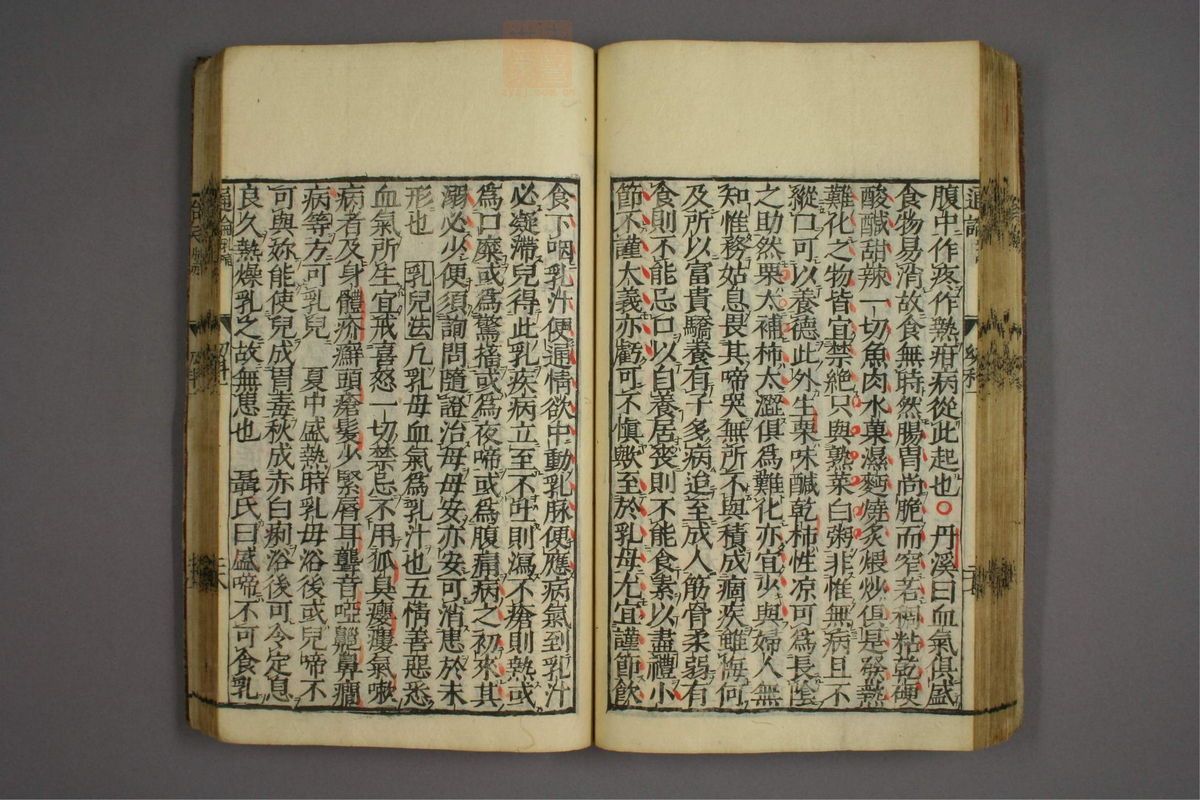 腹中作疼作熱疳病從此起也○丹溪曰血氣俱盛
食物易消故食無時然腸胃尚脆而窄若稠粘乾硬
酸鹹甜辣一切魚肉水菓濕麪燒炙煨炒俱是發熱
難化之物皆宜禁絶只與熟菜白粥非惟無病且不
縱口可以養德此外生栗味鹹乾柿性凉可爲長陰
之助然栗太補柿太澀俱爲難化亦宜少與婦人無
知惟務姑息畏其啼哭無所不與積成痼疾雖悔何
及所以富貴驕養有子多病迨至成人筋骨柔弱有
食則不能忌口以自養居丧則不能食素以盡禮小
節不謹大義亦虧可不愼歟至於乳母尤宜謹節飲
食下咽乳汁便通情欲中動乳脉便應病氣到乳汁
必凝滯兒得此乳疾病立至不吐則瀉不瘡則熱或
爲口糜或爲驚搐或爲夜啼或爲腹痛病之初來其
溺必少便須詢問隨證治母母安亦安可消患於未
形也 乳兒法 凡乳母血氣爲乳汁也五情善惡悉
血氣所生宜戒喜怒一切禁忌不用狐臭癭瘻氣嗽
病者及身體疥癬頭瘡髮少緊唇耳聾音啞齆鼻癇
病等方可乳兒 夏中盛熱時乳母浴後或兒啼不
可與妳能使兒成胃毒秋成赤白痢浴後可令定息
良久熱燥乳之故無患也 聶氏曰盛啼不可食乳